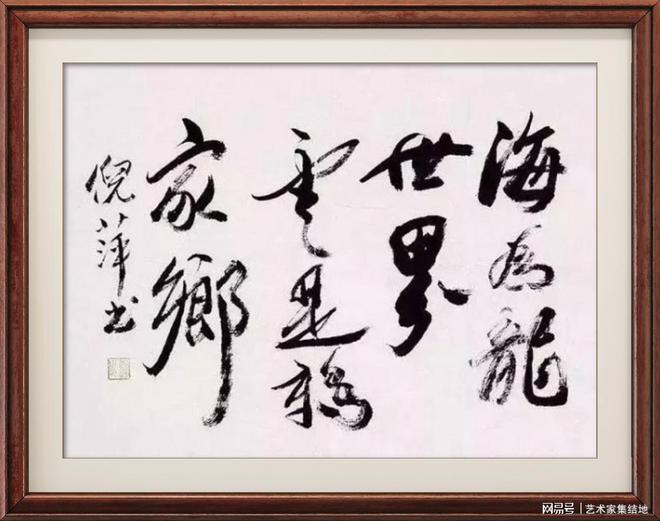 海為龍
世界
雲是鶴
家鄉
倪萍书
网易号 | 艺术家集结地